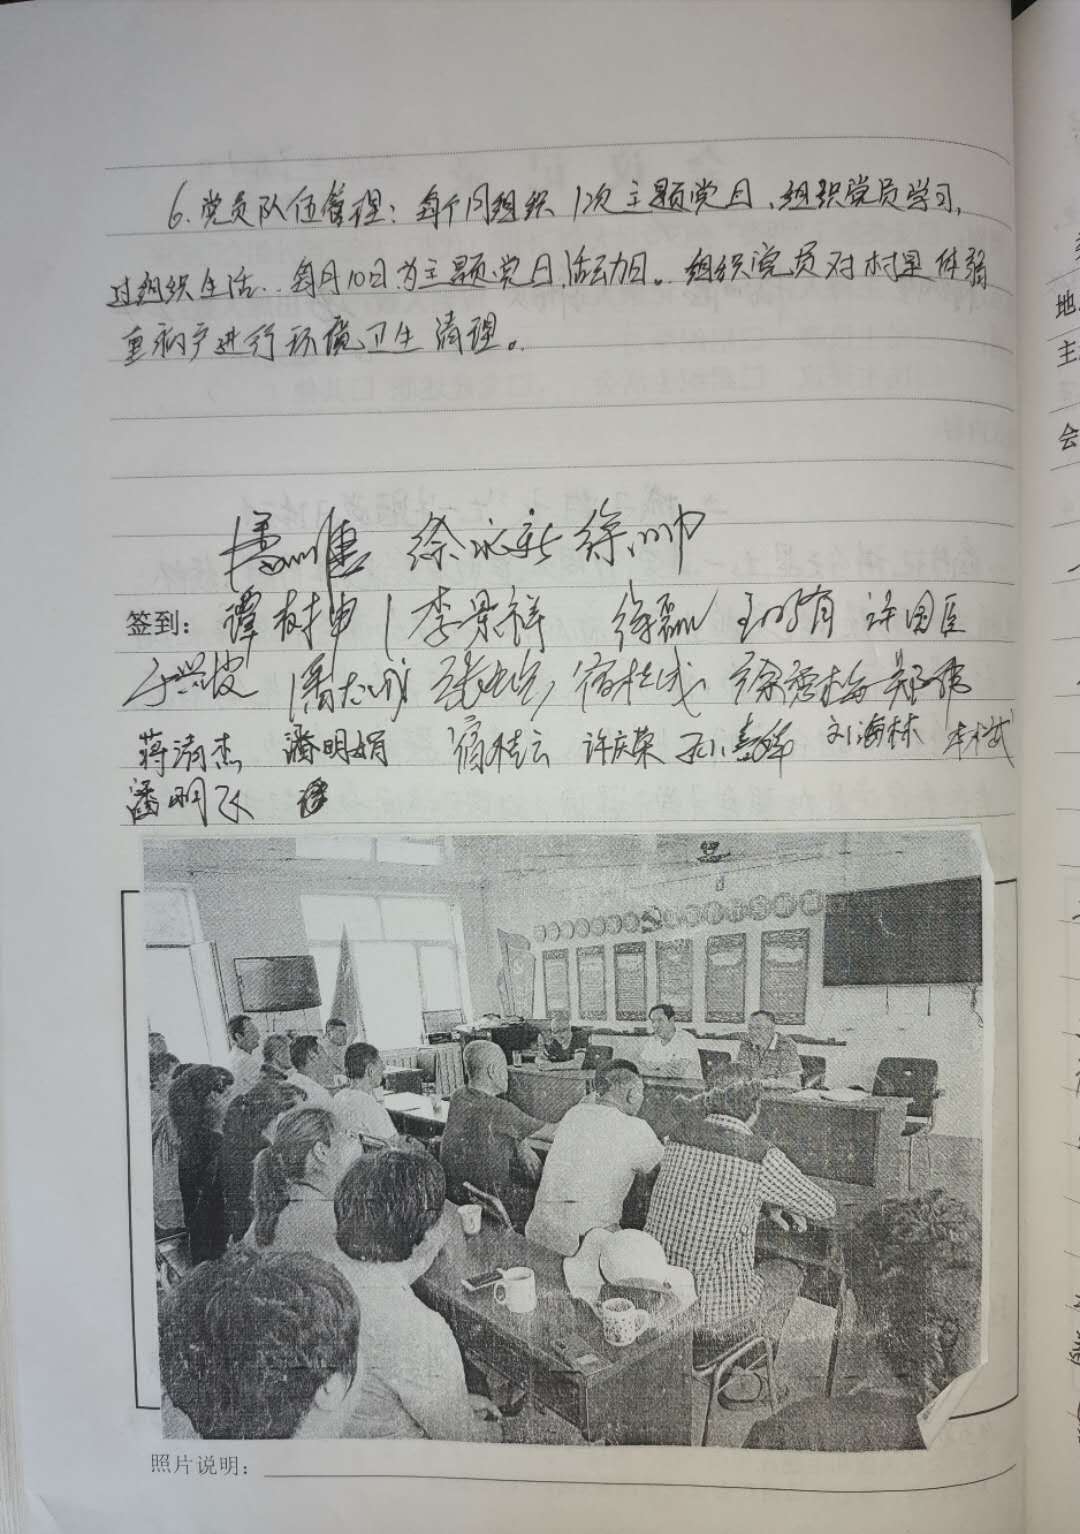 6. 党员队伍管理：每个月组织1次主题党日、组织党员学习，
过组织生活、每月10日为主题党日活动日。组织党员对村里体弱
重病户进行环境卫生清理。
徐永新 徐帅
签到：谭树申 李景祥 徐磊 王明有 许国臣
于兴 潘 宿桂成 徐秀梅 郑伟
蒋淑杰 潘明娟 宿桂云 许庆荣 孙嘉 刘海林
潘明
照片说明：
地
主
会